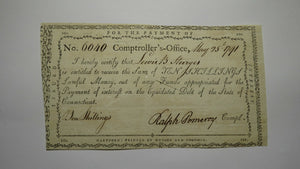 FOR THE PAYMENT OF
No. 6040 Comptroller's-Office, May 25 1791
I hereby certify that Lewis B Sturges
is entitled to receive the Sum of TEN SHILLINGS
Lawful Money, out of any Funds appropriated for the
Payment of interest on the Liquidated Debt of the State of
Connecticut.
Ten Shillings Ralph Pomeroy Compt.
HARTFORD: PRINTED BY HUDSON AND GOODWIN.